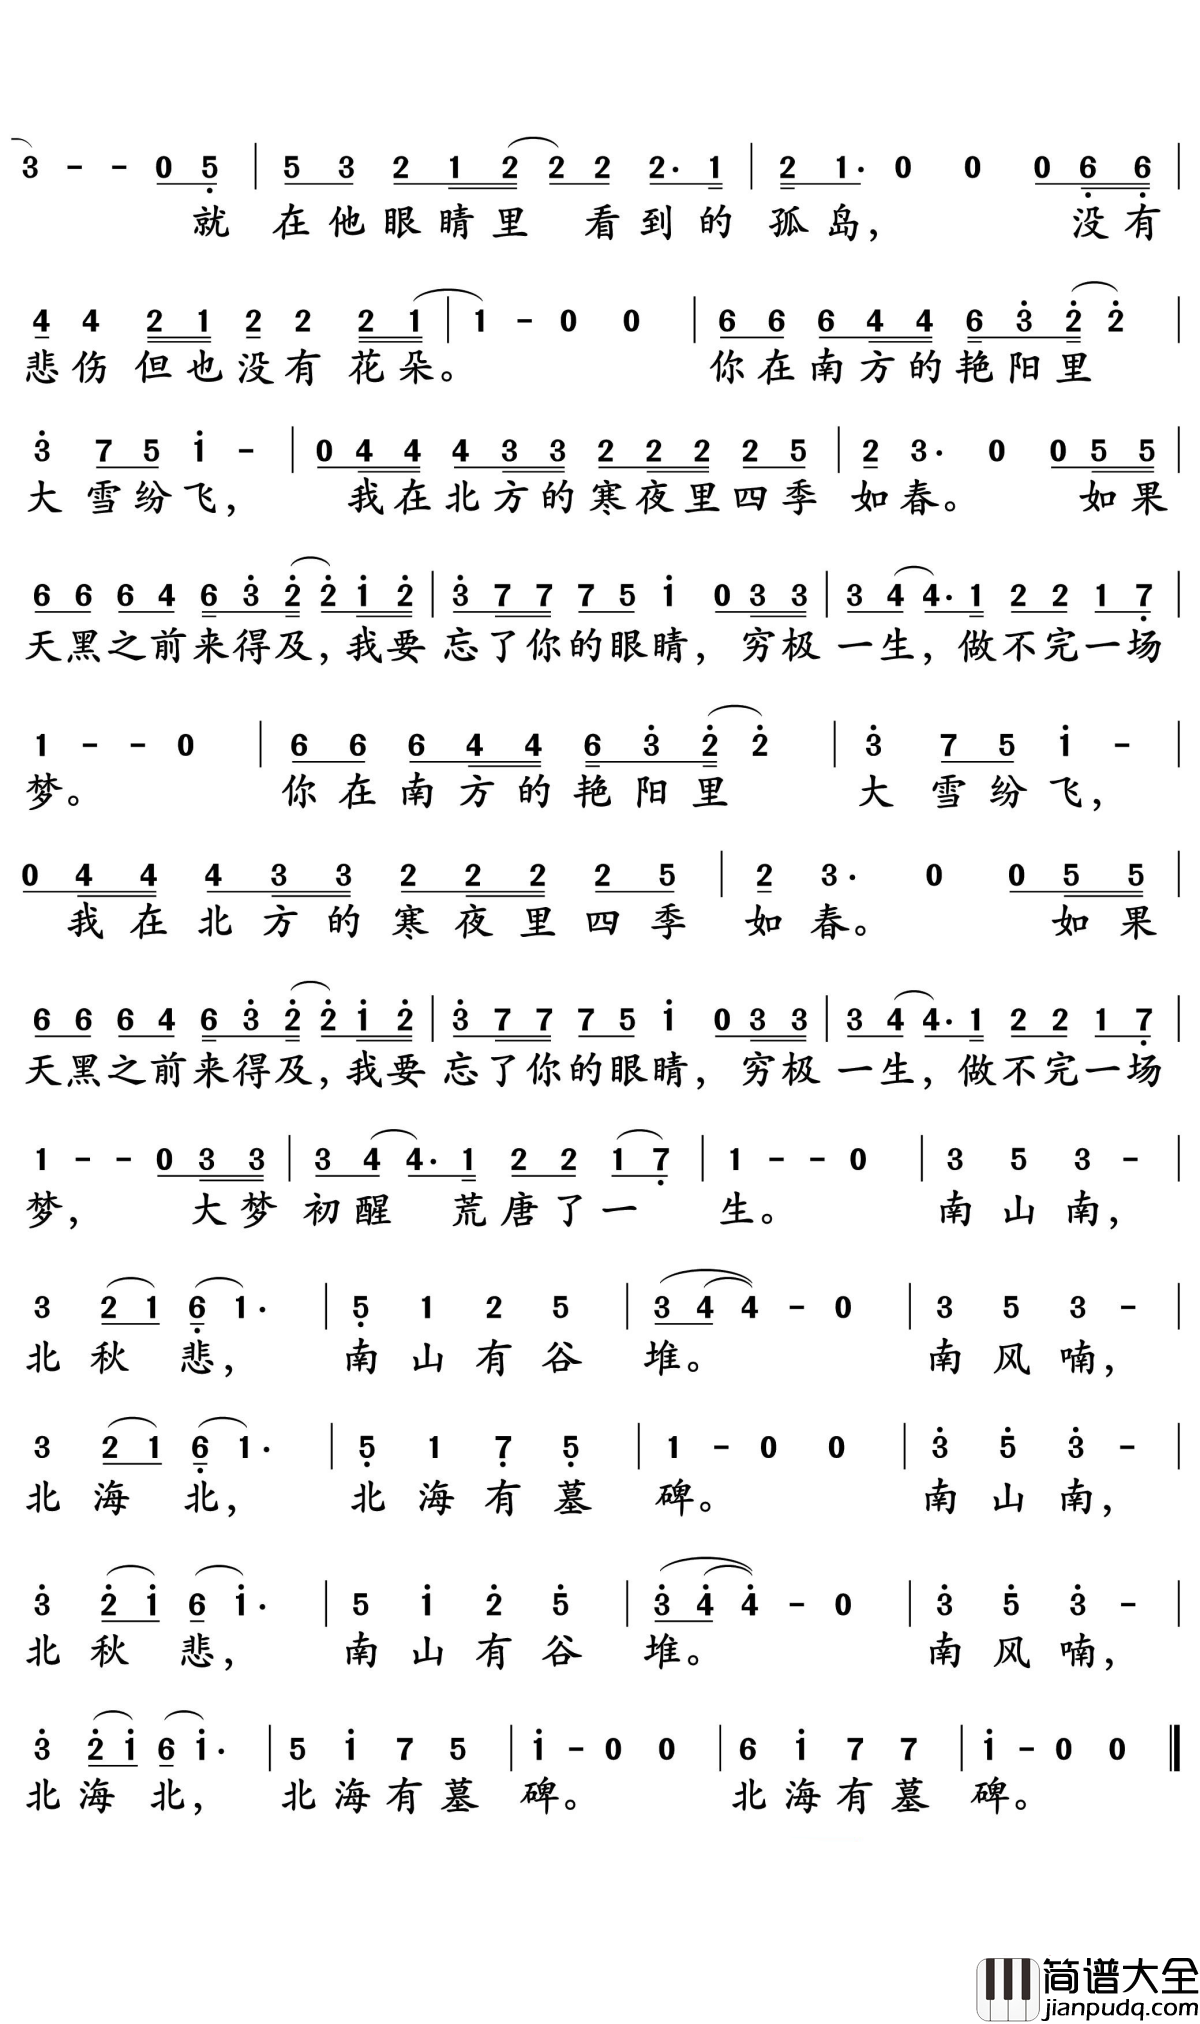 3 - - 0 5 | 5 3 2 1 2 2 2 2· 1 | 2 1· 0 0 0 6 6 |
就 在他眼睛里 看到的 孤岛， 没有
4 4 2 1 2 2 2 1 | 1 - 0 0 | 6 6 6 4 4 6 3 2 2 |
悲伤但也没有花朵。 你在南方的艳阳里
3 7 5 1 - | 0 4 4 4 3 3 2 2 2 2 5 | 2 3· 0 0 5 5 |
大雪纷飞， 我在北方的寒夜里四季 如春。 如果
6 6 6 4 6 3 2 2 1 2 | 3 7 7 7 5 1 0 3 3 | 3 4 4· 1 2 2 1 7 |
天黑之前来得及，我要 忘了你的眼睛， 穷极 一生， 做不完一场
1 - - 0 | 6 6 6 4 4 6 3 2 2 | 3 7 5 1 - |
梦。 你在南方的艳阳里 大雪纷飞，
0 4 4 4 3 3 2 2 2 2 5 | 2 3· 0 0 5 5 |
我在北方的寒夜里四季 如春。 如果
6 6 6 4 6 3 2 2 1 2 | 3 7 7 7 5 1 0 3 3 | 3 4 4· 1 2 2 1 7 |
天黑之前来得及，我要 忘了你的眼睛， 穷极 一生， 做不完一场
1 - - 0 3 3 | 3 4 4· 1 2 2 1 7 | 1 - - 0 | 3 5 3 - |
梦， 大梦 初醒 荒唐了一 生。 南山南，
3 2 1 6 1· | 5 1 2 5 | 3 4 4 - 0 | 3 5 3 - |
北秋悲， 南山有谷 堆。 南风喃，
3 2 1 6 1· | 5 1 7 5 | 1 - 0 0 | 3 5 3 - |
北海北， 北海有墓 碑。 南山南，
3 2 1 6 1· | 5 1 2 5 | 3 4 4 - 0 | 3 5 3 - |
北秋悲， 南山有谷 堆。 南风喃，
3 2 1 6 1· | 5 1 7 5 | 1 - 0 0 | 6 1 7 7 | 1 - 0 0 ||
北海北， 北海有墓 碑。 北海有墓 碑。
简谱大全
jianpudq.com